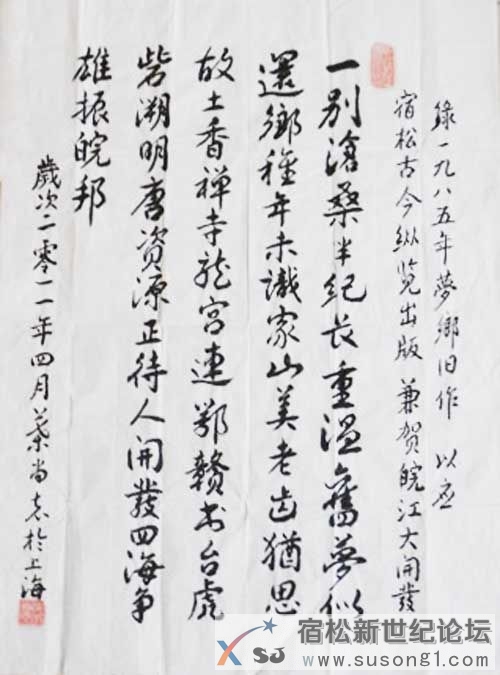 錄一九八五年夢鄉旧作 以应
宿松古今纵览出版 兼贺皖江大開發
一别滄桑半纪长重温舊夢似
還鄉稚年未識家山美老齿猶思
故土香禅寺龙宫連鄂赣书台虎
砦溯明唐资源正待人開發四海争
雄振皖邦
歲次二零一一年四月葉尚志於上海
宿松新世纪论坛
XSJ
www.susong1.com